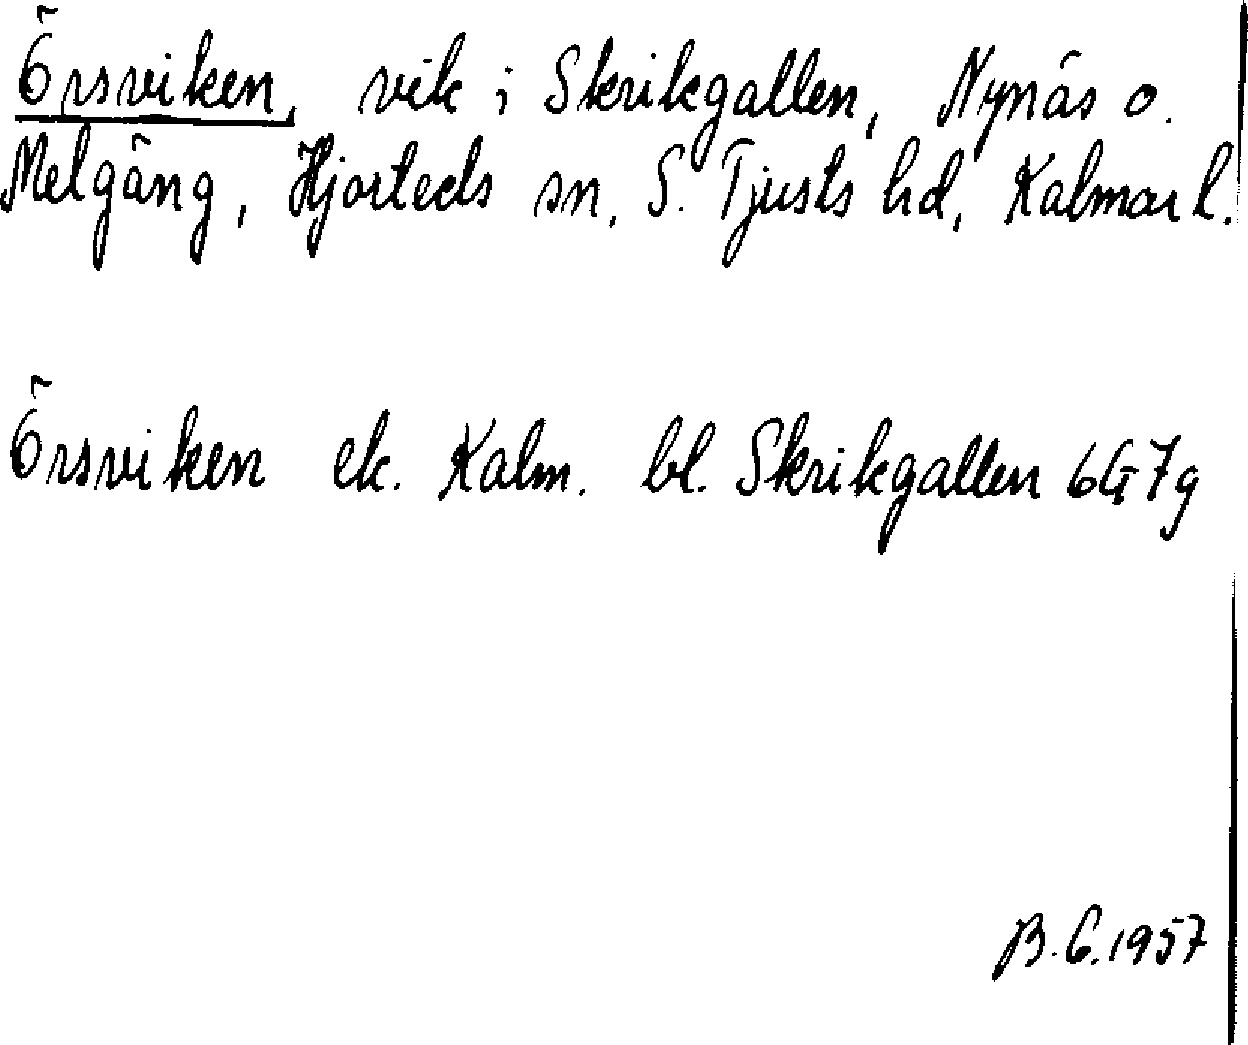 Örsviken, vik i Skrikgallen, Nynäs o.
Melgäng, Hjorteds sn, S. Tjusts hd, Kalmar l.
Örsviken ek. Kalm. bl. Skrikgallen 6G7g
B.G.1957